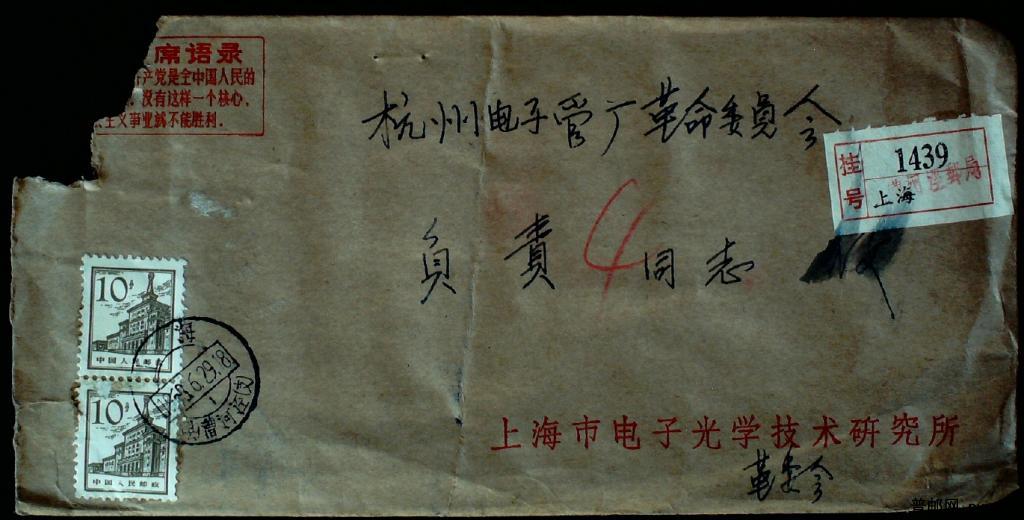 席语录
产党是全中国人民的
没有这样一个核心，
主义事业就不能胜利．
杭州电子管厂革命委员会
挂号
1439
上海
负责 4 同志
10
中国人民邮政
10
中国人民邮政
上海市电子光学技术研究所
革委会
普邮网